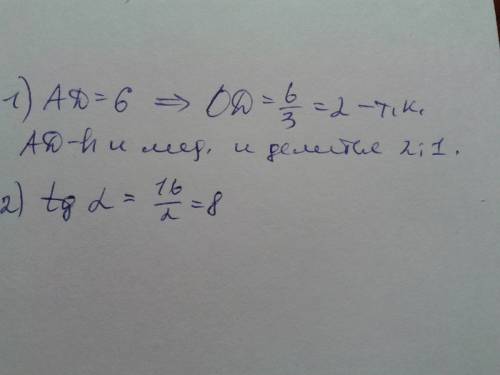 1) AD = 6 ⇒ OD = 6/3 = 2 – т.к.
AD – h и мед. и делится 2:1.
2) tg α = 16/2 = 8